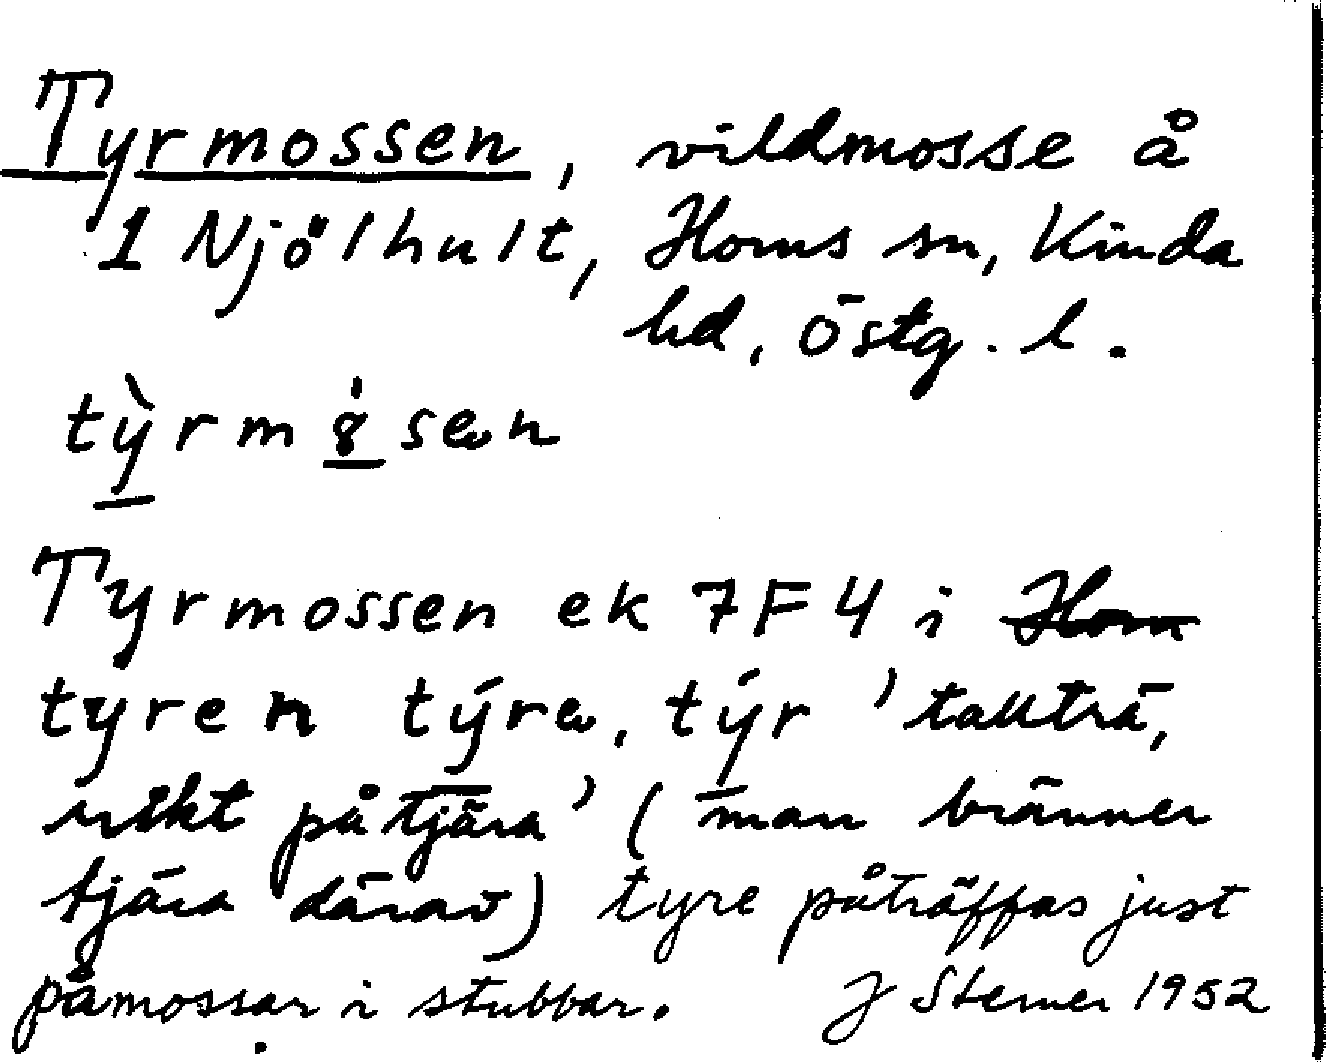 Tyrmossen, vildmosse å
1 Njölhult, Horns sn, Kinda
hd, Östg. l.
tỳrm8̇sən
Tyrmossen ek 7F4 i Horn
tyren týrə, týr 'tallträ,
rikt på tjära' (man bränner
tjära därav) tyre påträffas just
på mossar i stubbar. J Sterner 1952